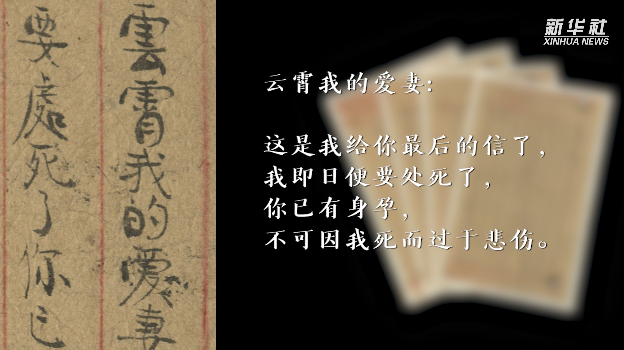 雲霄我的愛妻
要處死了你已
新华社
XINHUA NEWS
云霄我的爱妻:
这是我给你最后的信了，
我即日便要处死了，
你已有身孕，
不可因我死而过于悲伤。